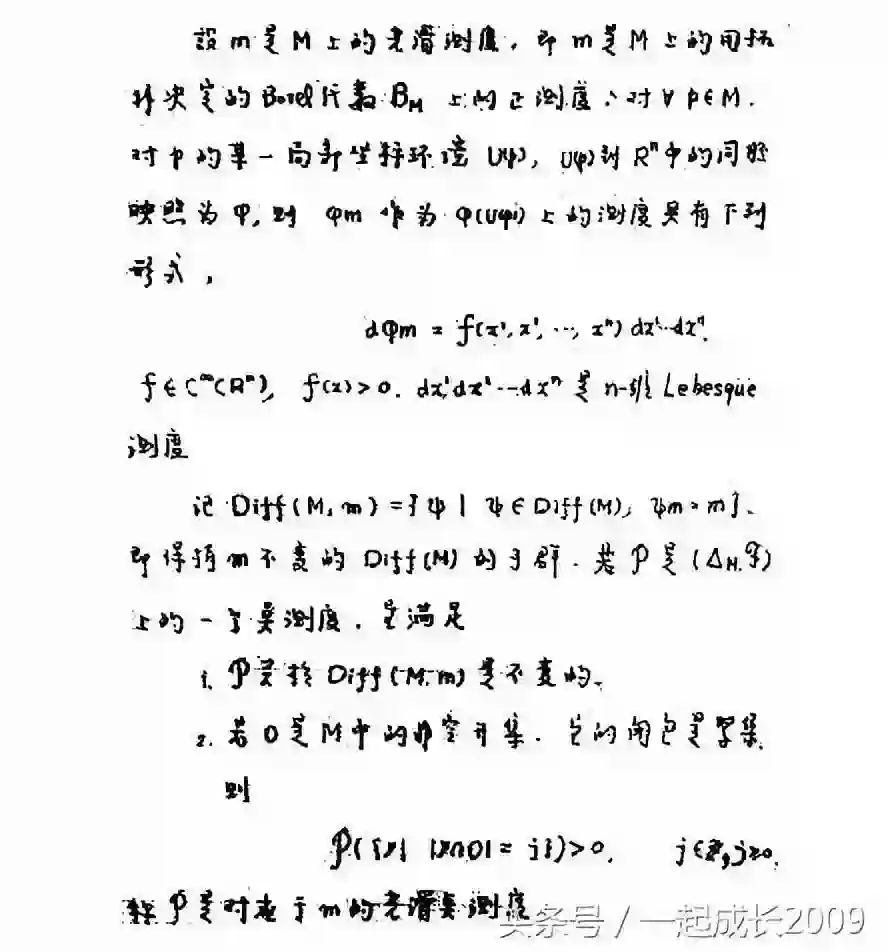 設 m 是 M 上的光滑測度, 即 m 是 M 上的由拓
扑决定的 Borel 代数 B_M 上的正測度, 对 ∀ p∈M.
对 p 的某一局部坐标环境 U(p), U(p)到 R^n 中的同胚
映照为 φ, 則 φm 作为 φ(U(p)) 上的測度具有下列
形式,
dφm = f(x^1, x^2, ..., x^n) dx^1...dx^n.
f ∈ C^∞(R^n), f(x)>0. dx^1dx^2...dx^n 是 n-维 Lebesque
測度
记 Diff(M, m) = {ψ | ψ ∈ Diff(M), ψm = m}.
即保持 m 不变的 Diff(M) 的子群. 若 P 是 (Δ_M, F)
上的一个 測度, 它满足
1. P 关于 Diff(M, m) 是不变的.
2. 若 O 是 M 中的非空开集. 它的闭包是紧集
則
P({γ| |γ∩O| = j})>0. j∈Z, j≥0.
称 P 是对应于 m 的光滑 測度
头条号 / 一起成长2009